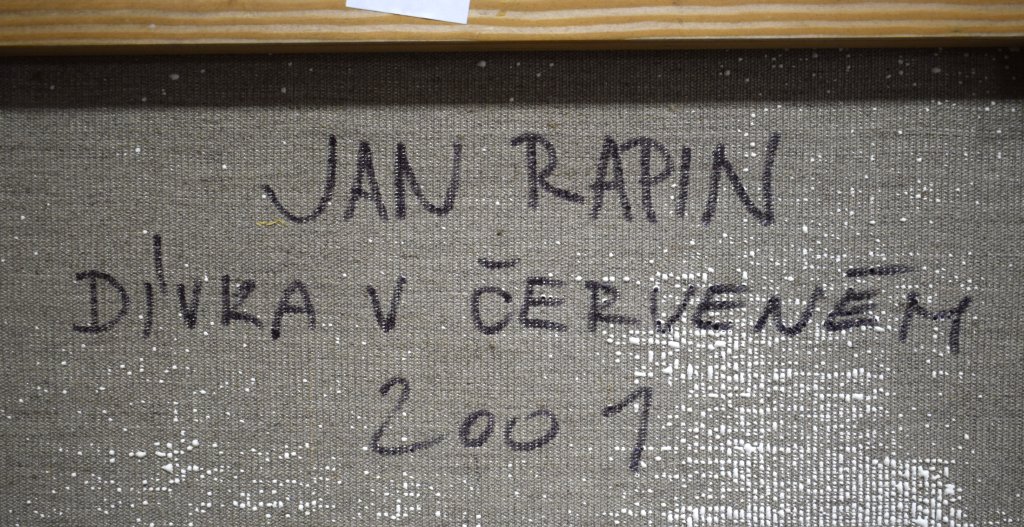 JAN RAPIN
DÍVKA V ČERVENÉM
2001